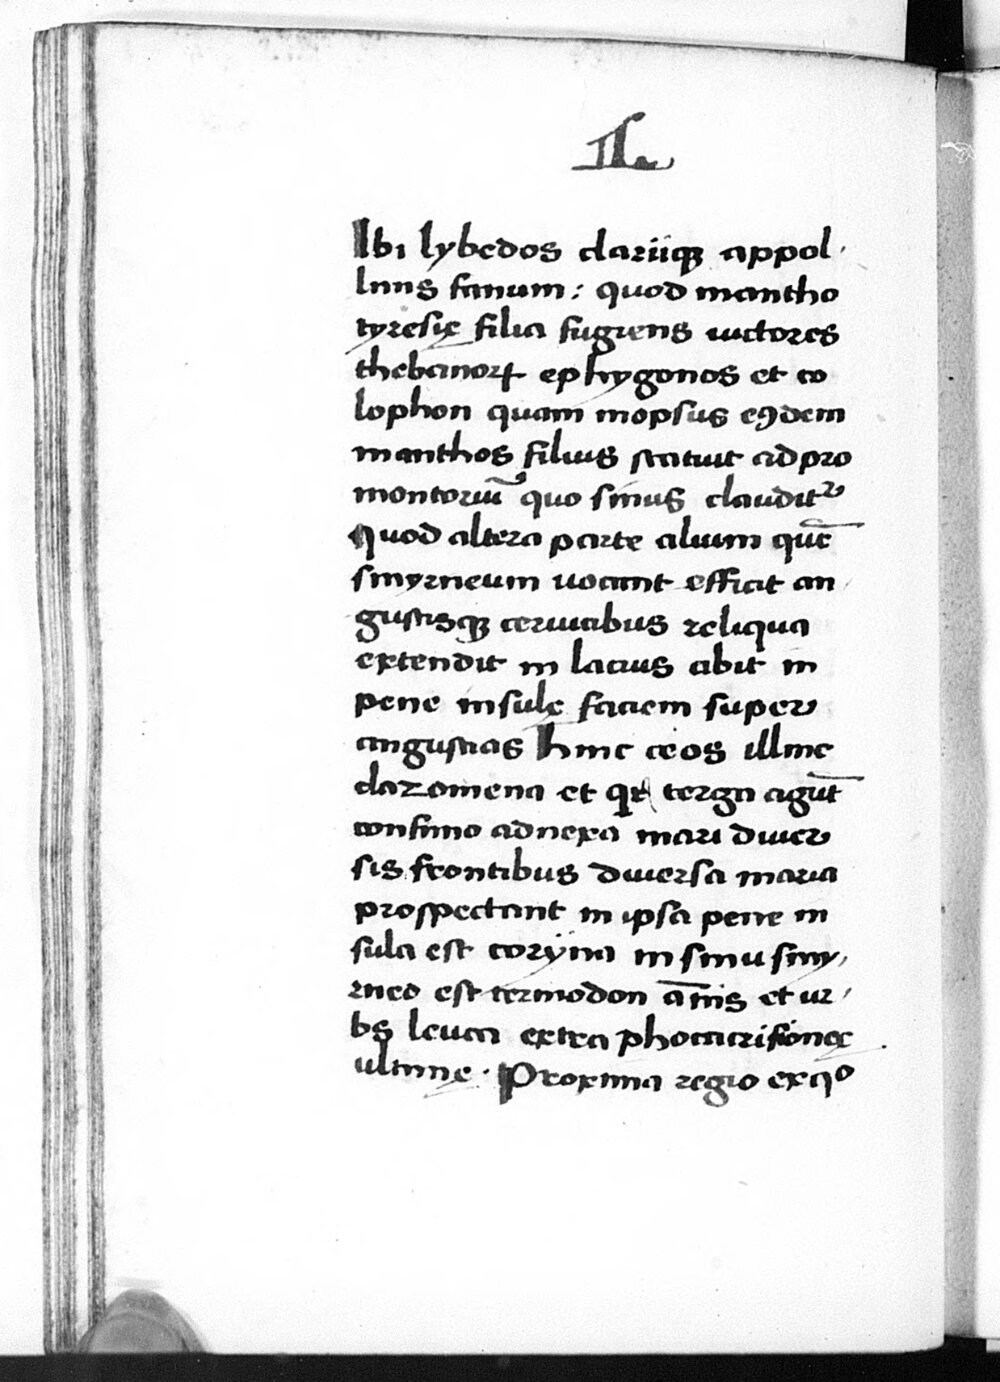 Ibi lybedos clariiqꝫ appol
linis fanum: quod mantho
tyresię filia fugiens uictores
thebanorꝝ ephygonos et co
lophon quam mopsus eꝯdem
manthos filius statuit ad pro
montoriū quo sinus claudit᷑
Quod altera parte alium quē
smyrneum uocant efficit an
gustisqꝫ ceruicibus reliqua
extendit in latius abit in
pene insulę faciem super
angustias hinc teos illinc
clazomena et q terga agūt
confinio adnexa muri diuer
sis frontibus diuersa maria
prospectant in ipsa pene in
sula est corÿna in sinu smy
rneo est termodon āmis et ur
bs leuca extra phocea
ultimę. Proxima regio ex qͦ